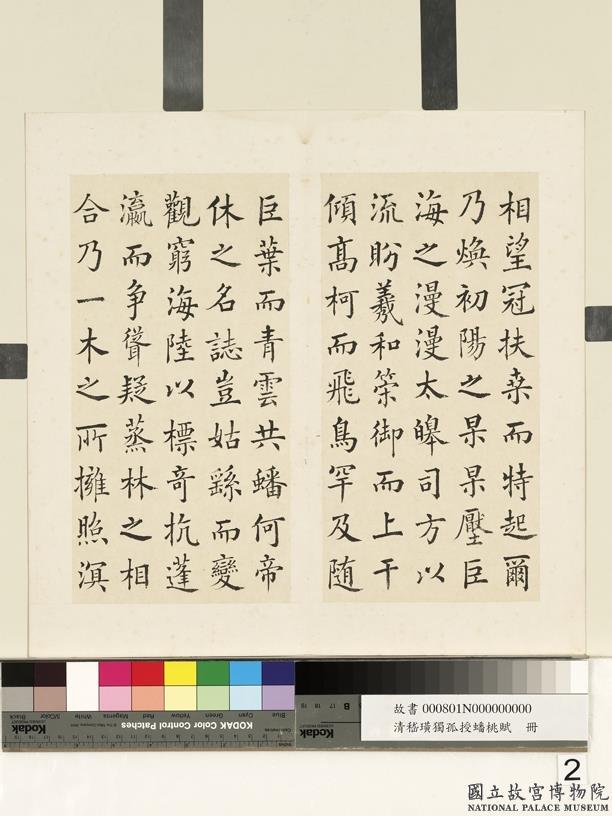 相望冠扶桒而特起爾
乃煥初陽之杲杲壓巨
海之漫漫太皞司方以
流盻羲和䇿御而上干
傾髙柯而飛鳥罕及随
巨葉而青雲共蟠何帝
休之名誌豈姑繇而變
觀窮海陸以標竒抗蓬
瀛而争聳疑蒸林之相
合乃一木之所擁照溟
KODAK Color Control Patches
Kodak
LICENSED PRODUCT
Black
3/Color
White
Magenta
Red
Yellow
Green
Cyan
Blue
B
17
18
19
故書 000801N000000000
清嵇璜獨孤授蟠桃賦 冊
2
國立故宮博物院
NATIONAL PALACE MUSEUM